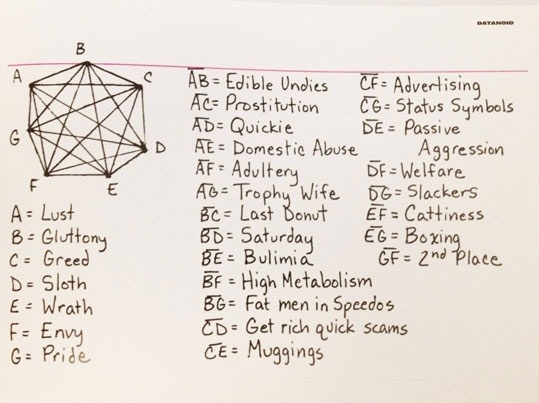 DATANOID
B
A
C
G
D
F
E
A = Lust
B = Gluttony
C = Greed
D = Sloth
E = Wrath
F = Envy
G = Pride
A̅B̅ = Edible Undies
A̅C̅ = Prostitution
A̅D̅ = Quickie
A̅E̅ = Domestic Abuse
A̅F̅ = Adultery
A̅G̅ = Trophy Wife
B̅C̅ = Last Donut
B̅D̅ = Saturday
B̅E̅ = Bulimia
B̅F̅ = High Metabolism
B̅G̅ = Fat men in Speedos
C̅D̅ = Get rich quick scams
C̅E̅ = Muggings
C̅F̅ = Advertising
C̅G̅ = Status Symbols
D̅E̅ = Passive
Aggression
D̅F̅ = Welfare
D̅G̅ = Slackers
E̅F̅ = Cattiness
E̅G̅ = Boxing
G̅F̅ = 2nd Place